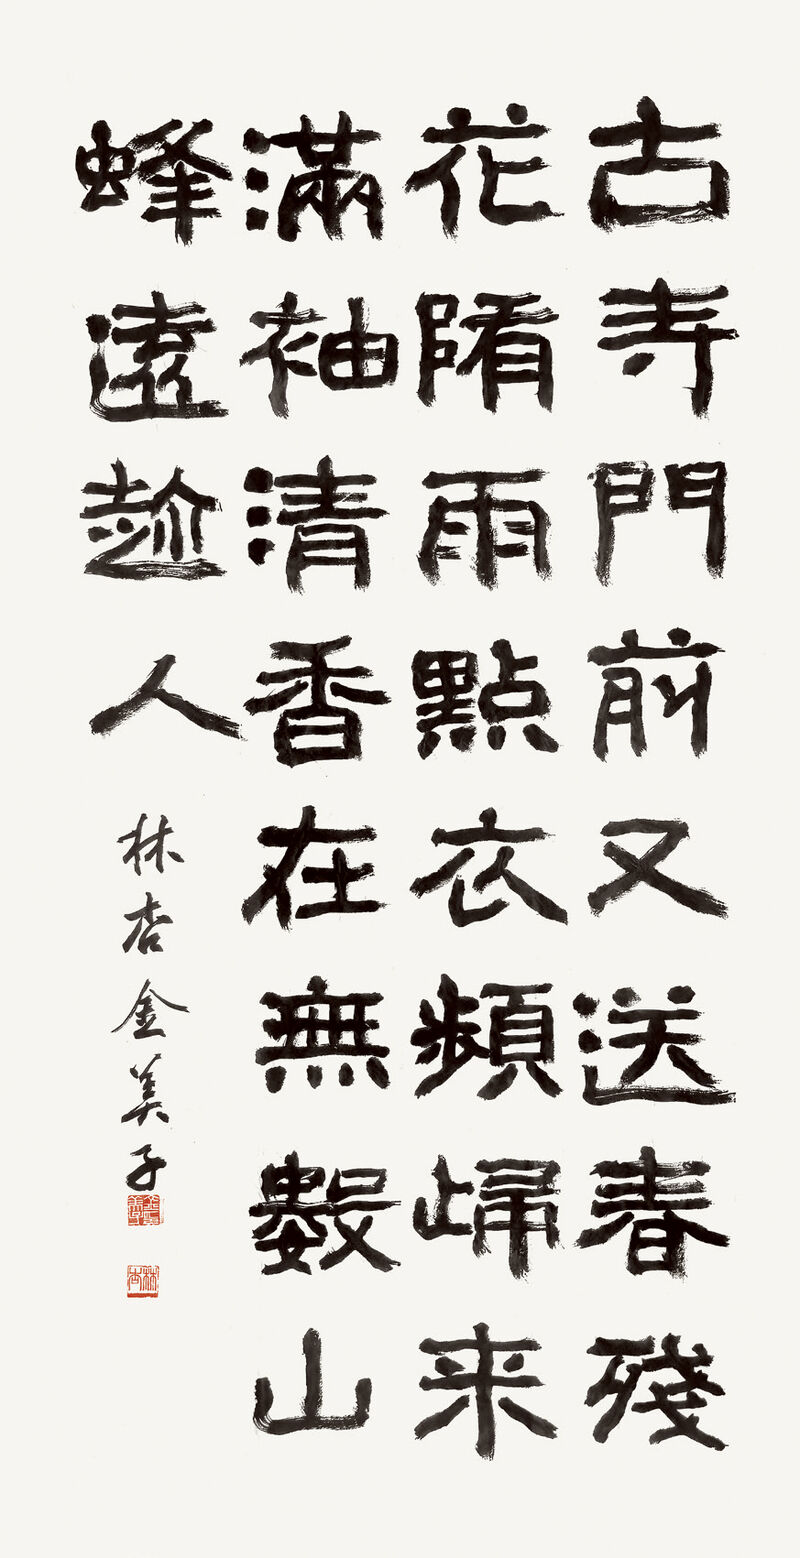 古寺門前又送春殘
花陏雨點衣頻㱕来
滿袖清香在無數山
蜂遠趂人
林杏金美子
林杏